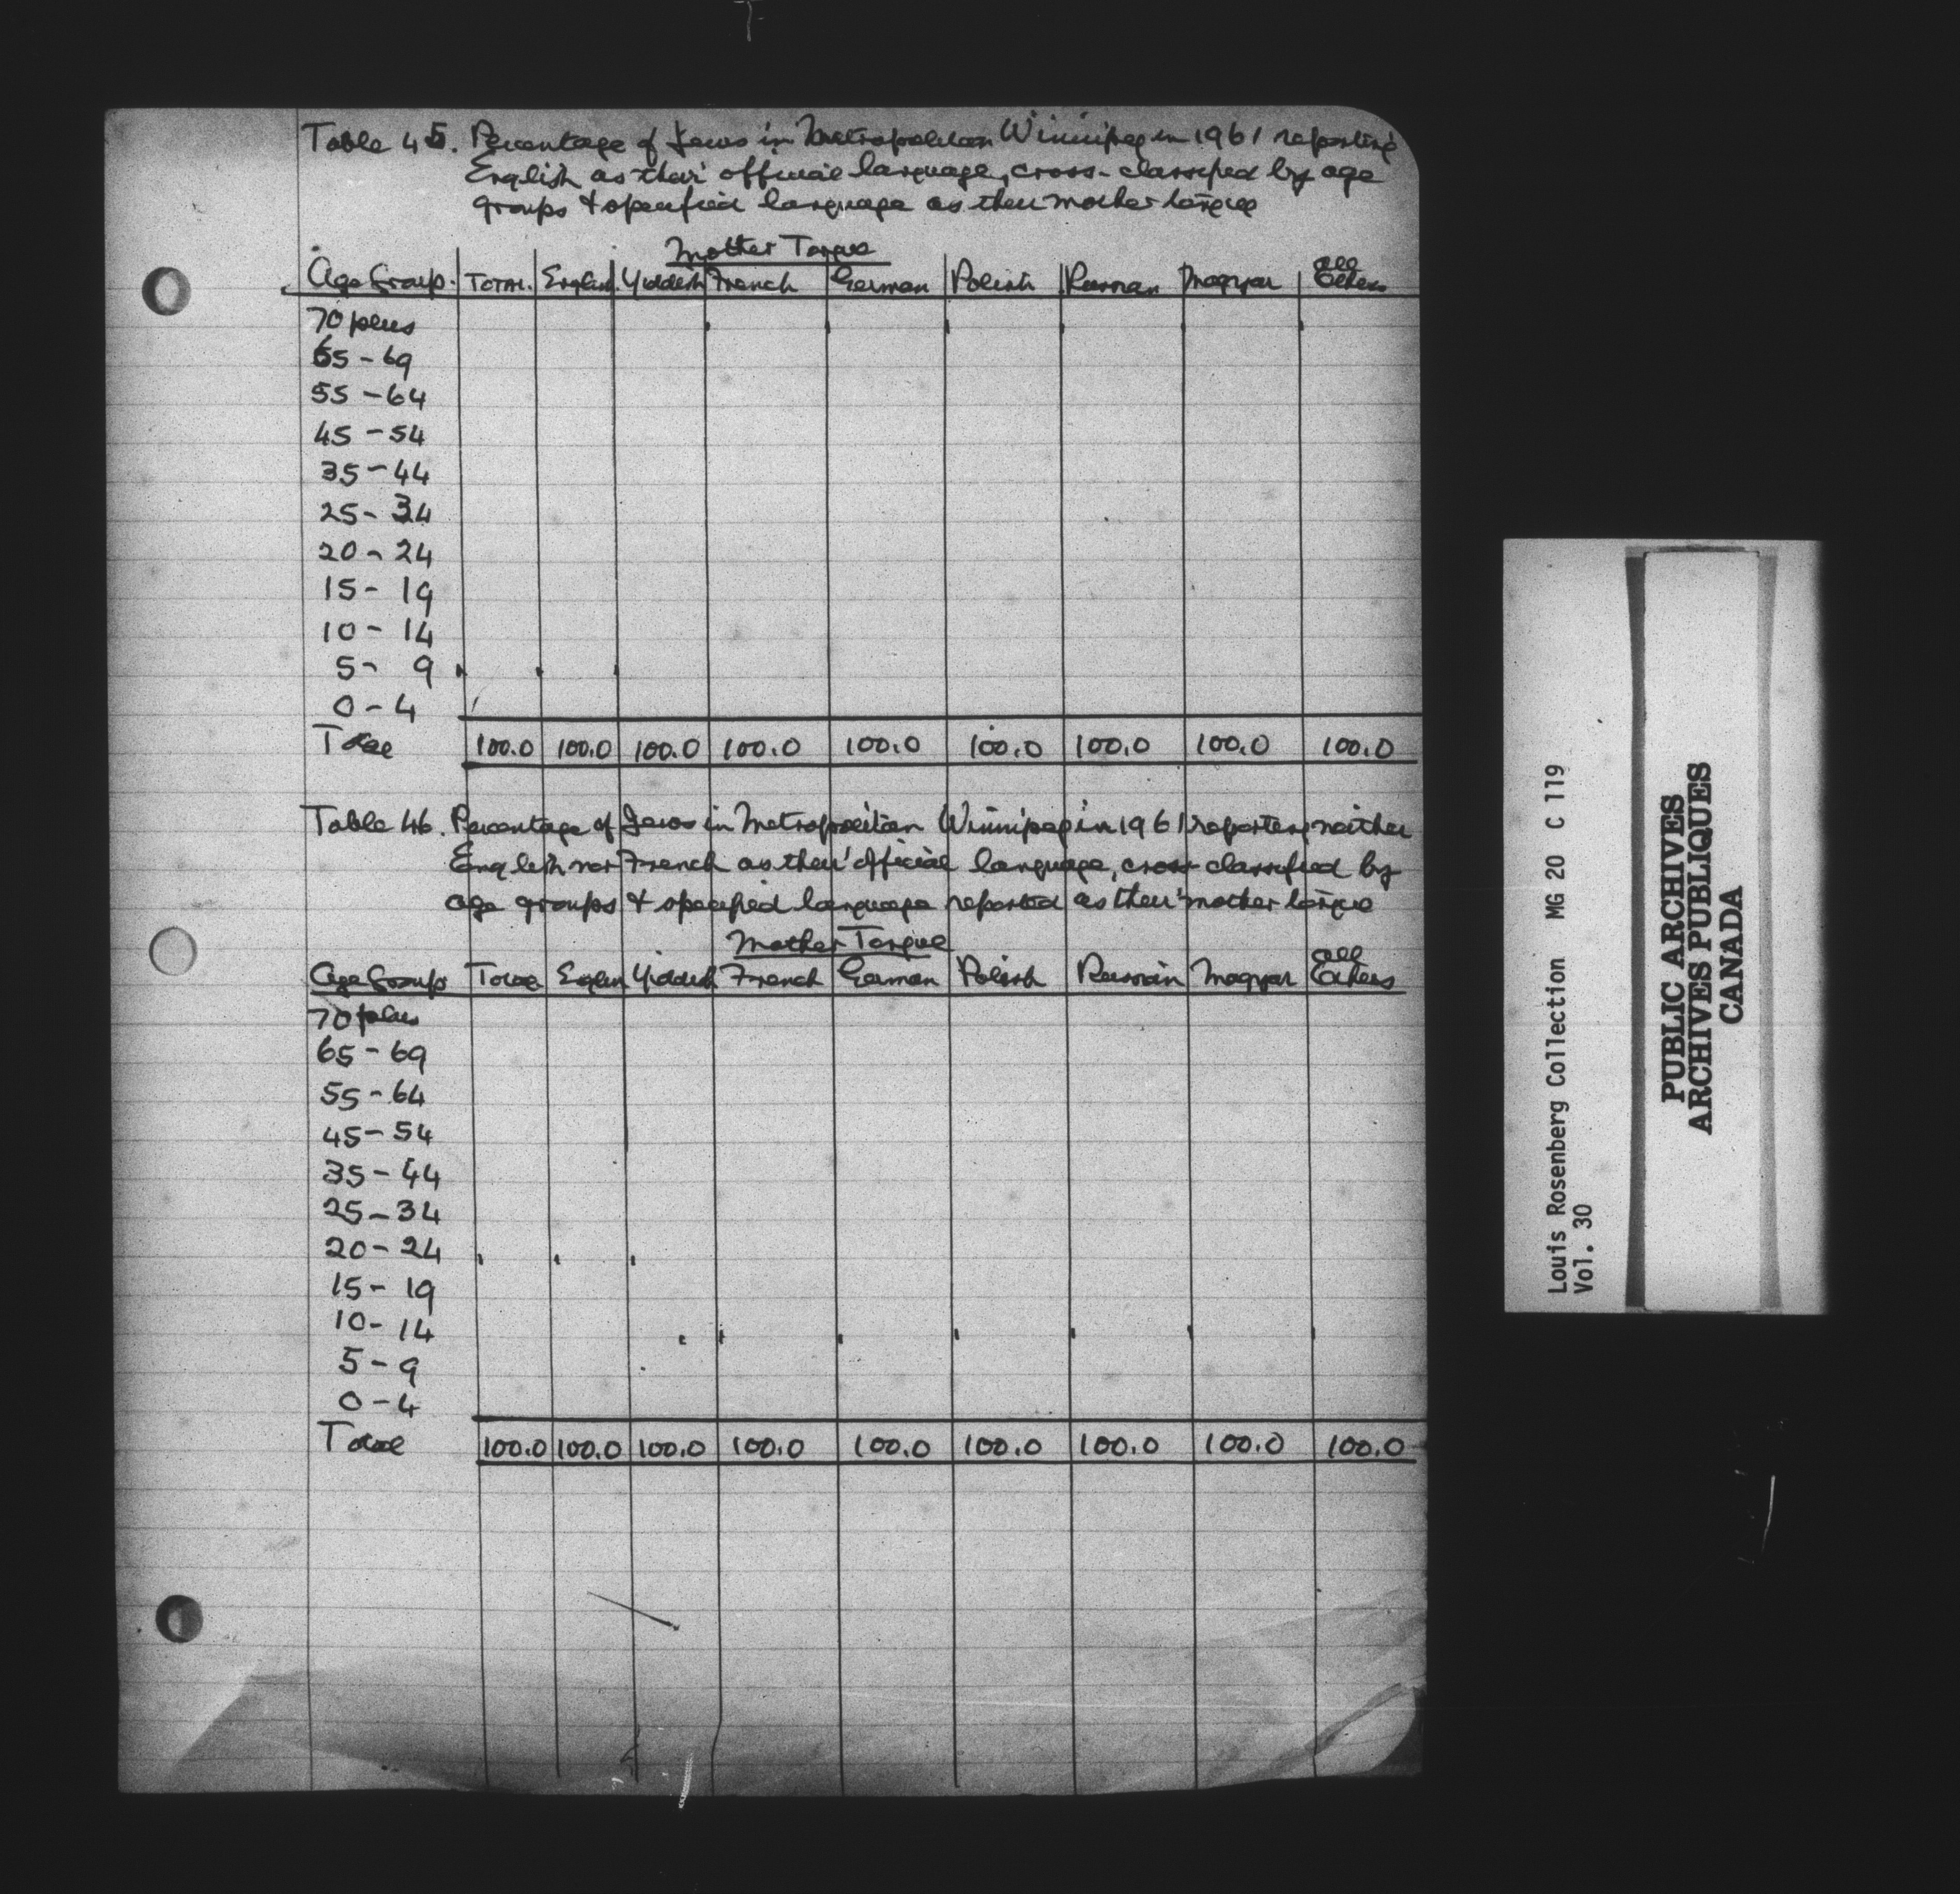 Table 45. Percentage of Jews in Metropolitan Winnipeg in 1961 reporting
English as their official language, cross-classified by age
groups & specified language as their mother tongue
Mother Tongue
Age Group. TOTAL. English Yiddish French German Polish Russian Magyar All Others
70 plus
65 - 69
55 - 64
45 - 54
35 - 44
25 - 34
20 - 24
15 - 19
10 - 14
5 - 9
0 - 4
Total 100.0 100.0 100.0 100.0 100.0 100.0 100.0 100.0 100.0
Table 46. Percentage of Jews in Metropolitan Winnipeg in 1961 reporting neither
English nor French as their official language, cross classified by
age groups & specified language reported as their mother tongue
Mother Tongue
Age Groups Total English Yiddish French German Polish Russian Magyar All Others
70 plus
65 - 69
55 - 64
45 - 54
35 - 44
25 - 34
20 - 24
15 - 19
10 - 14
5 - 9
0 - 4
Total 100.0 100.0 100.0 100.0 100.0 100.0 100.0 100.0 100.0
Louis Rosenberg Collection MG 20 C 119
Vol. 30
PUBLIC ARCHIVES
ARCHIVES PUBLIQUES
CANADA